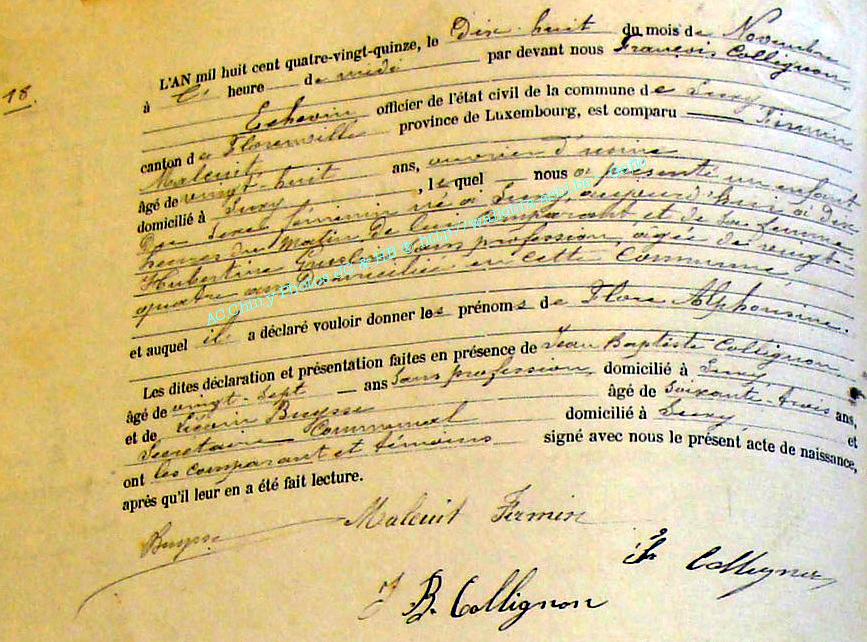 L'AN mil huit cent quatre-vingt-quinze, le Dix huit du mois de Novembre
18.
à heure de midi par devant nous François Collignon,
Echevin officier de l'état civil de la commune de Suxy,
canton de Florenville province de Luxembourg, est comparu Firmin
Maleuit,
âgé de vingt-huit ans, ouvrier d'usine
domicilié à Suxy, lequel nous a présenté un enfant
Du Sexe féminin né à Suxy, aujourd'hui à Dix
heures du Matin de lui comparant et de sa femme
Hubertine sans profession, âgée de vingt-
quatre ans Domiciliée en cette Commune,
AC Chiny Photos JG & HB @ http://wallonia.asbl.be
et auquel il a déclaré vouloir donner les prénoms de Flore Alphonsine.
Les dites déclaration et présentation faites en présence de Jean Baptiste Collignon
âgé de vingt-sept ans Sans profession, domicilié à Suxy,
et de Buysse âgé de Soixante-trois ans,
Secrétaire Communal domicilié à Suxy et
ont les comparant et témoins signé avec nous le présent acte de naissance,
après qu'il leur en a été fait lecture.
Buysse Maleuit Firmin
Fr Collignon
J B. Collignon